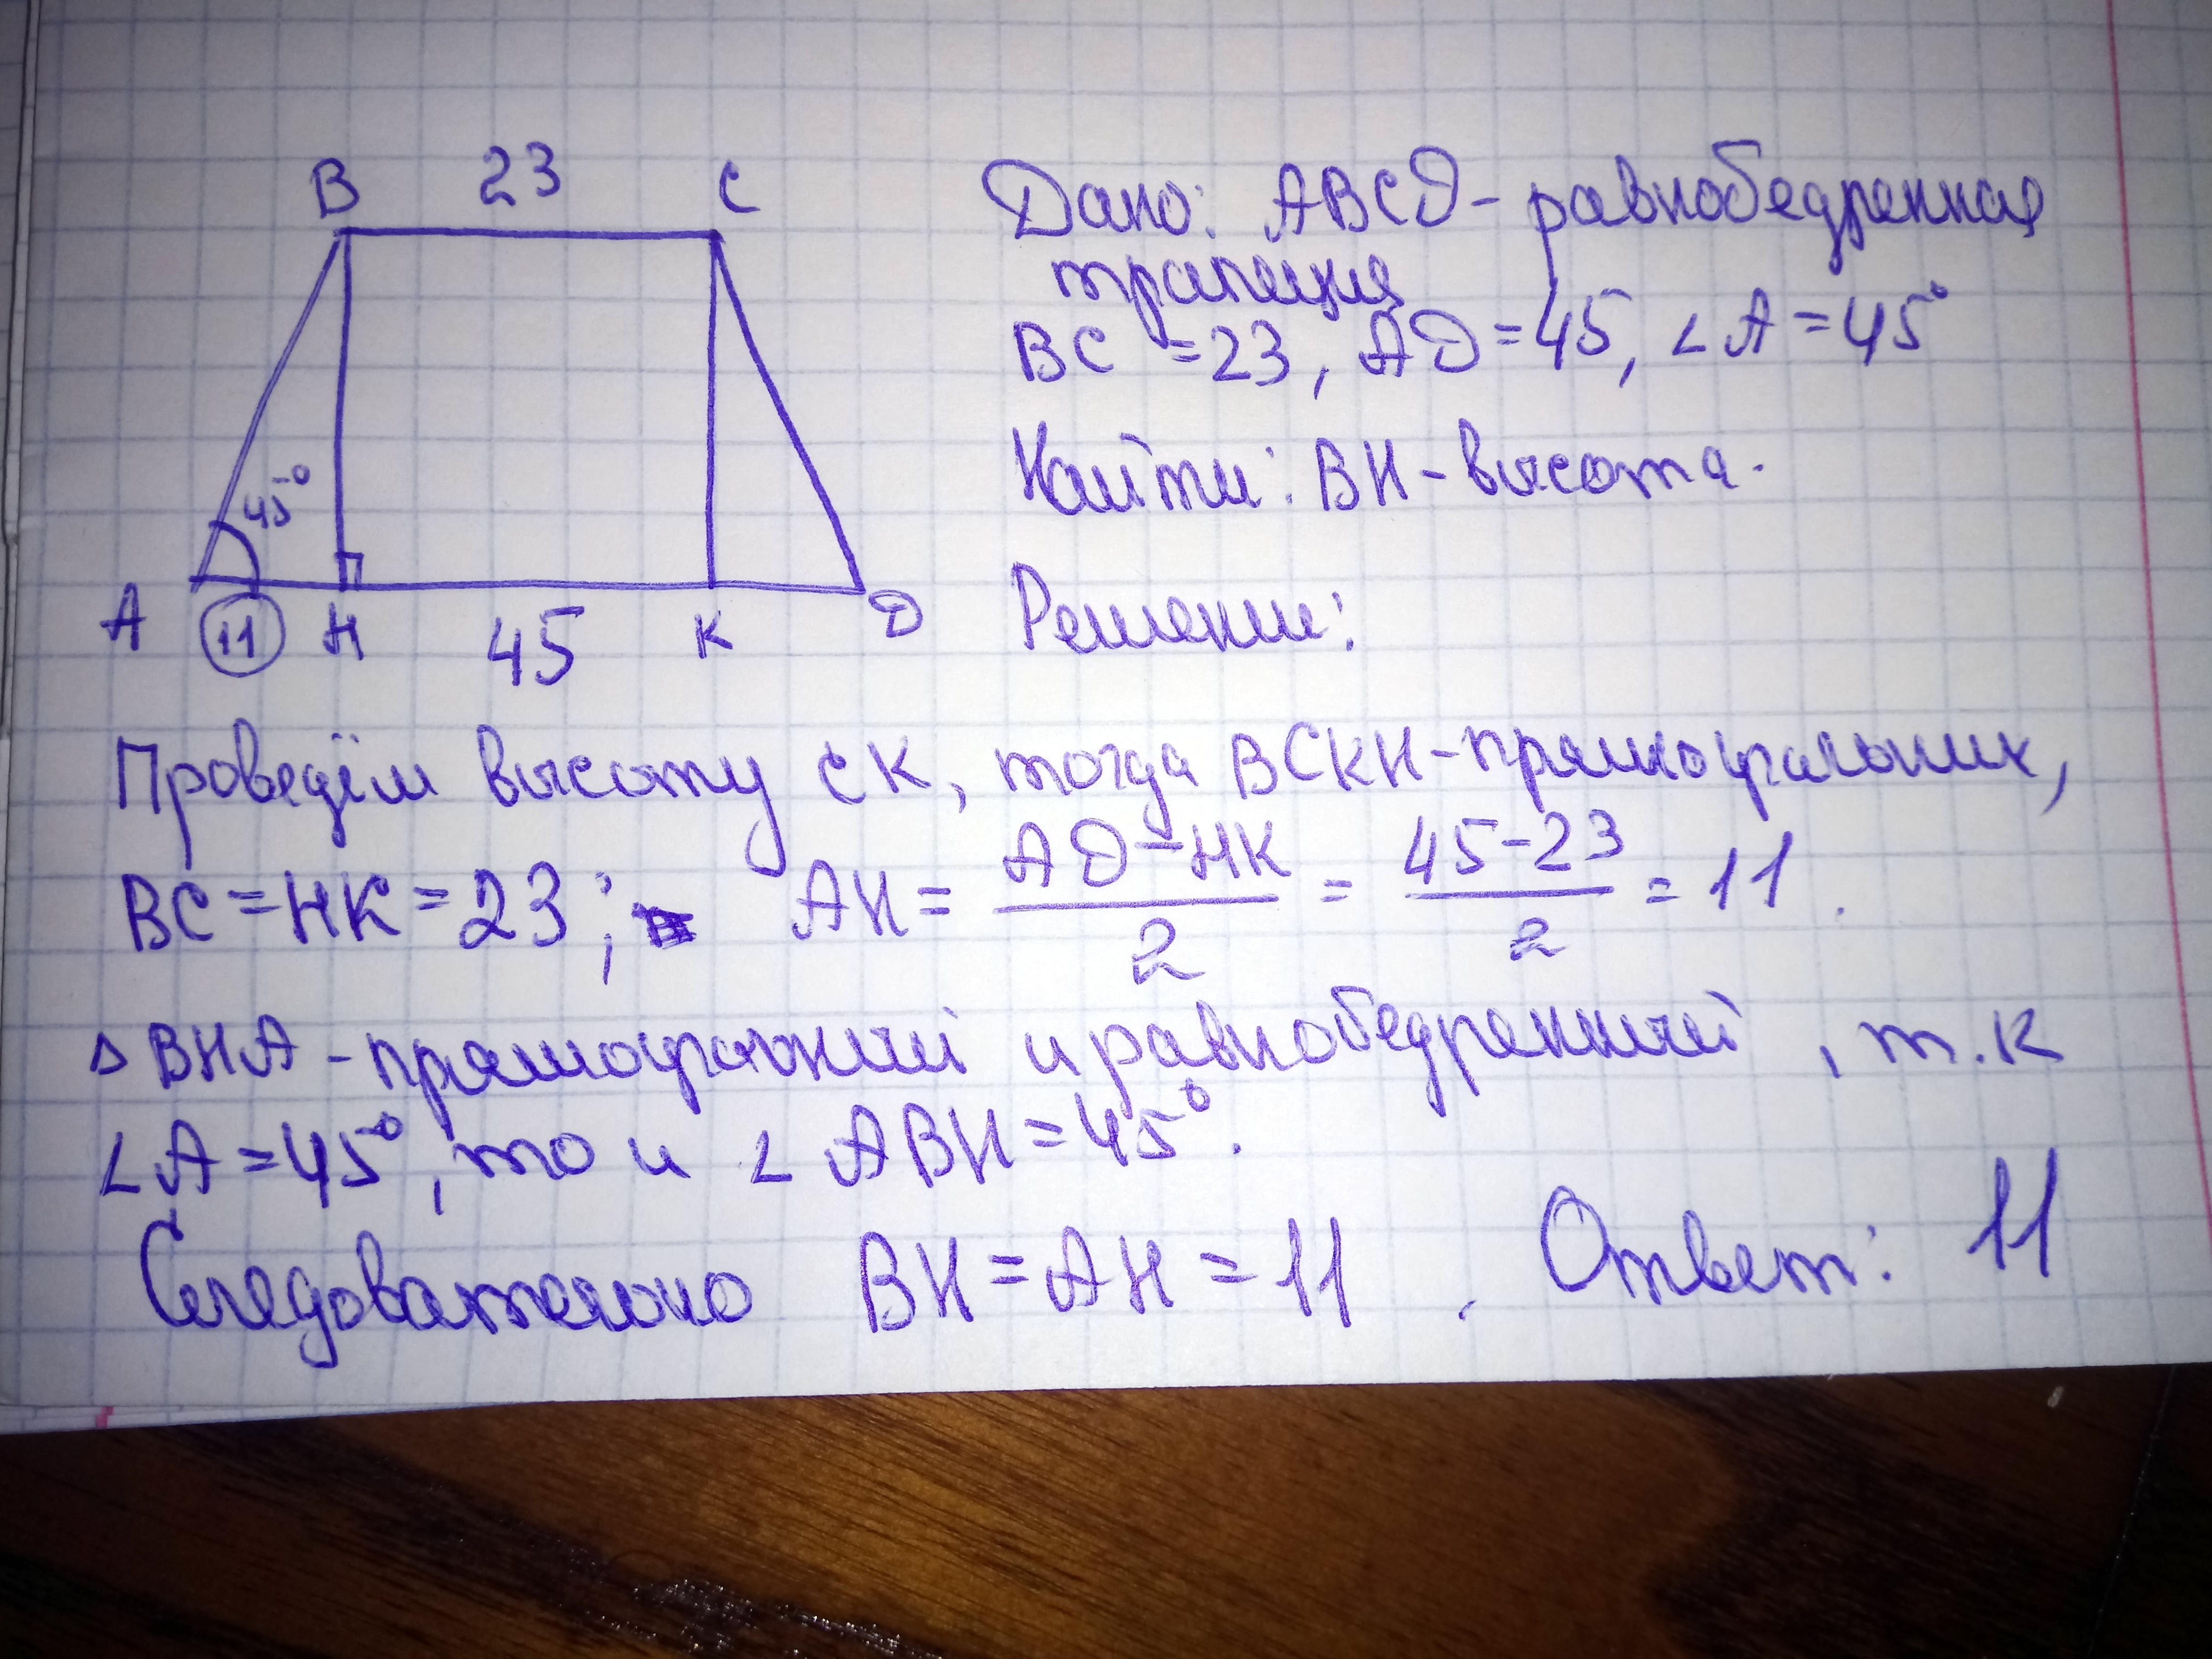 B 23 C
45°
A 11 H 45 K D
Дано: ABCD - равнобедренная
трапеция
BC = 23, AD = 45, ∠A = 45°
Найти: BH - высота.
Решение:
Проведём высоту CK, тогда BCKH - прямоугольник,
BC = HK = 23; AH = \frac{AD - HK}{2} = \frac{45 - 23}{2} = 11.
△BHA - прямоугольный и равнобедренный, т.к
∠A = 45°, то и ∠ABH = 45°.
Следовательно BH = AH = 11. Ответ: 11